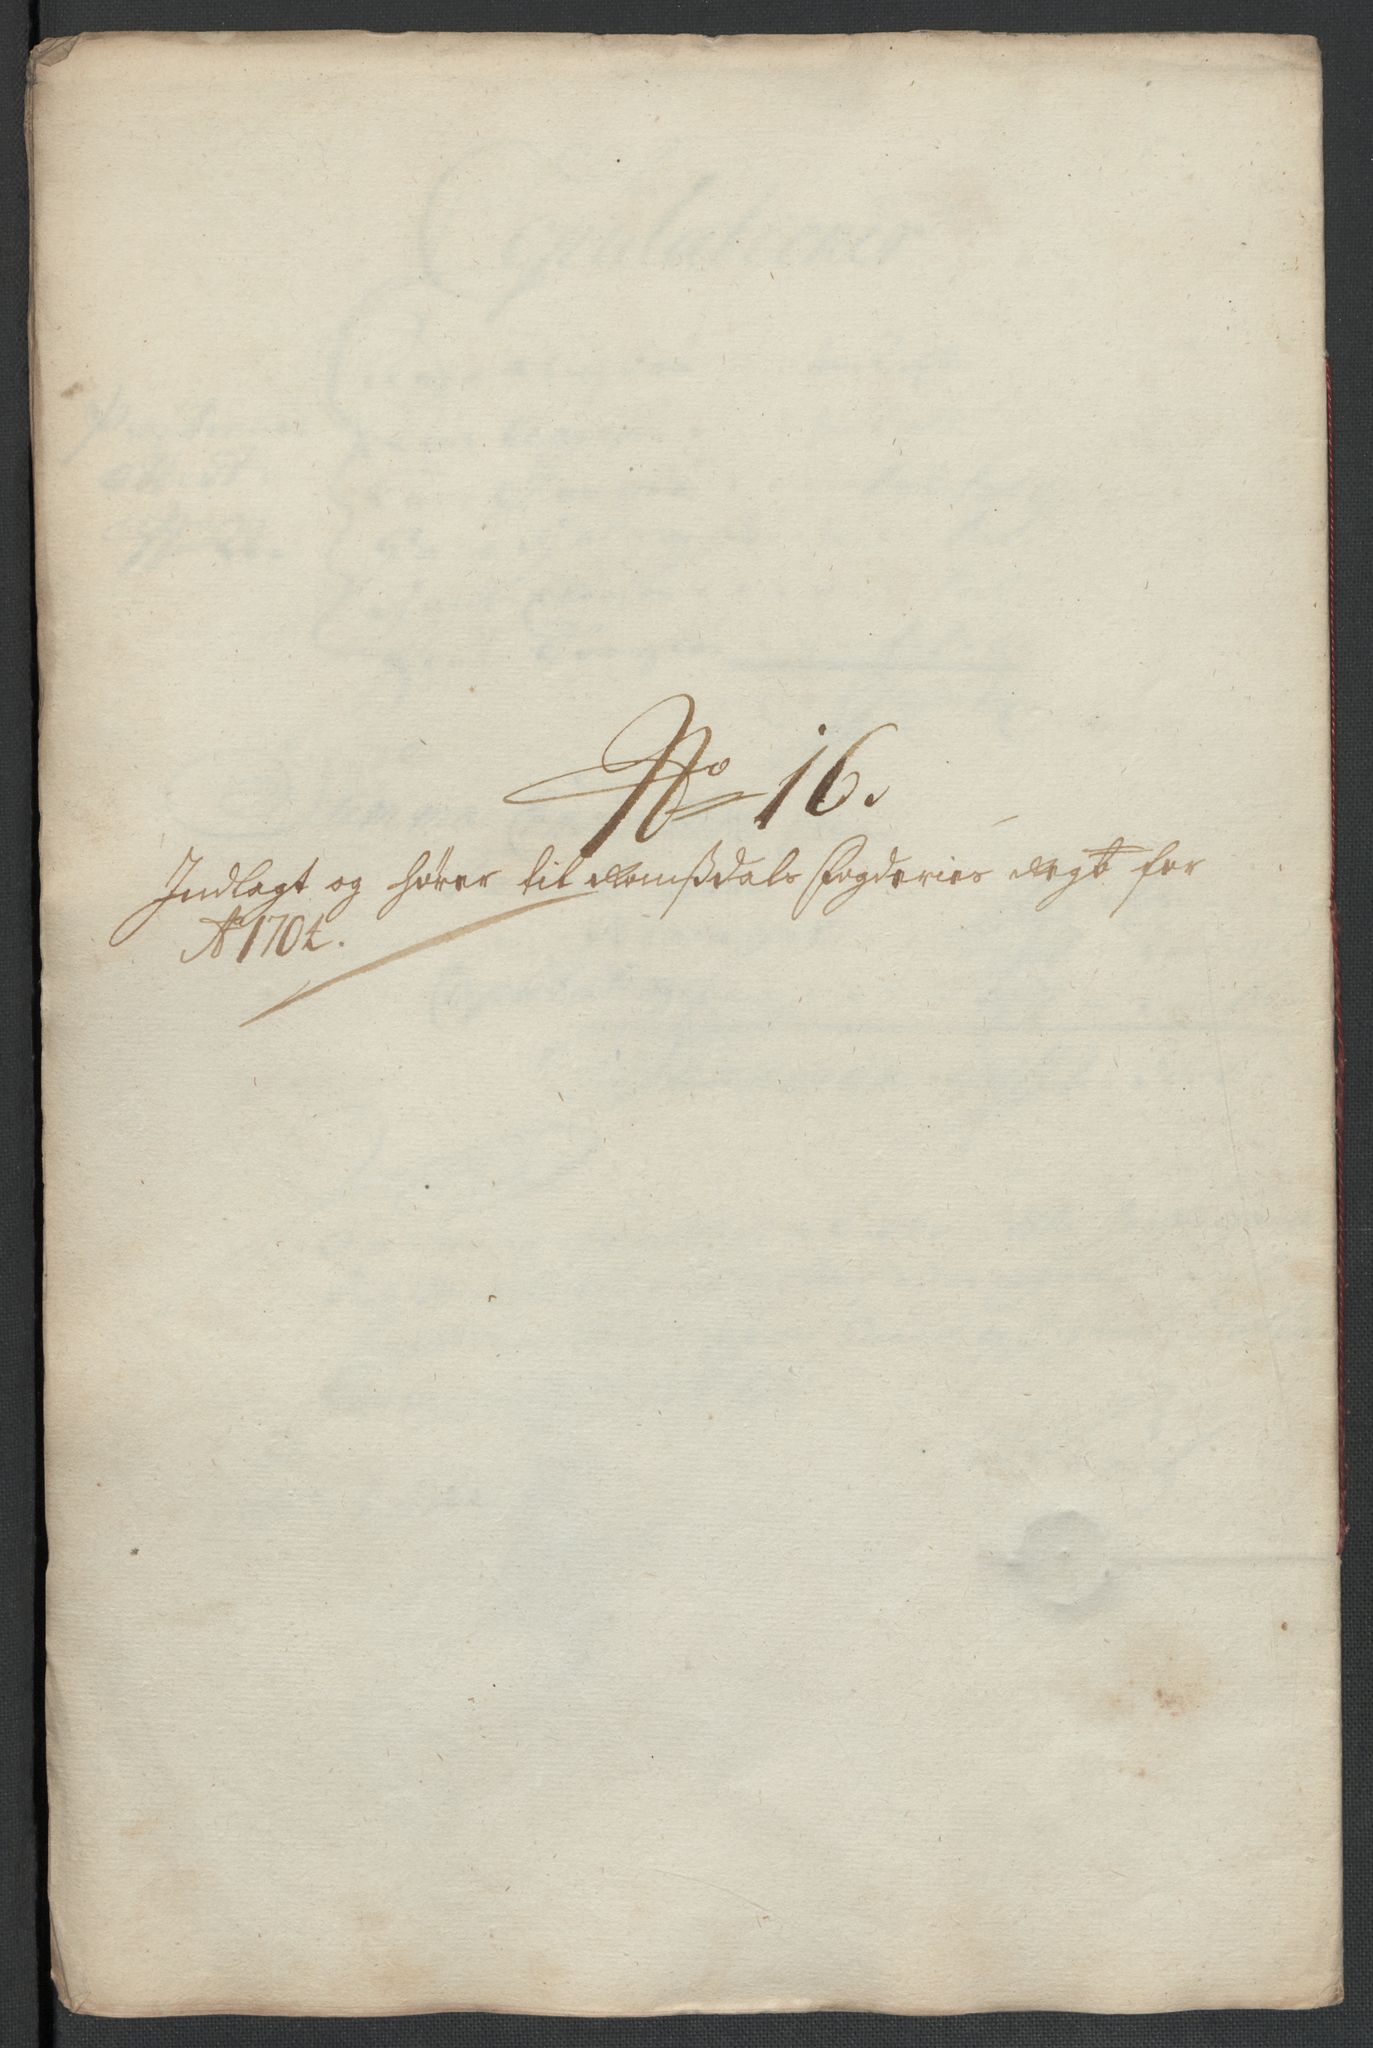 No 16.
Indlagt og hører til Romßdals Fogderies Regb for
Ao 1704.